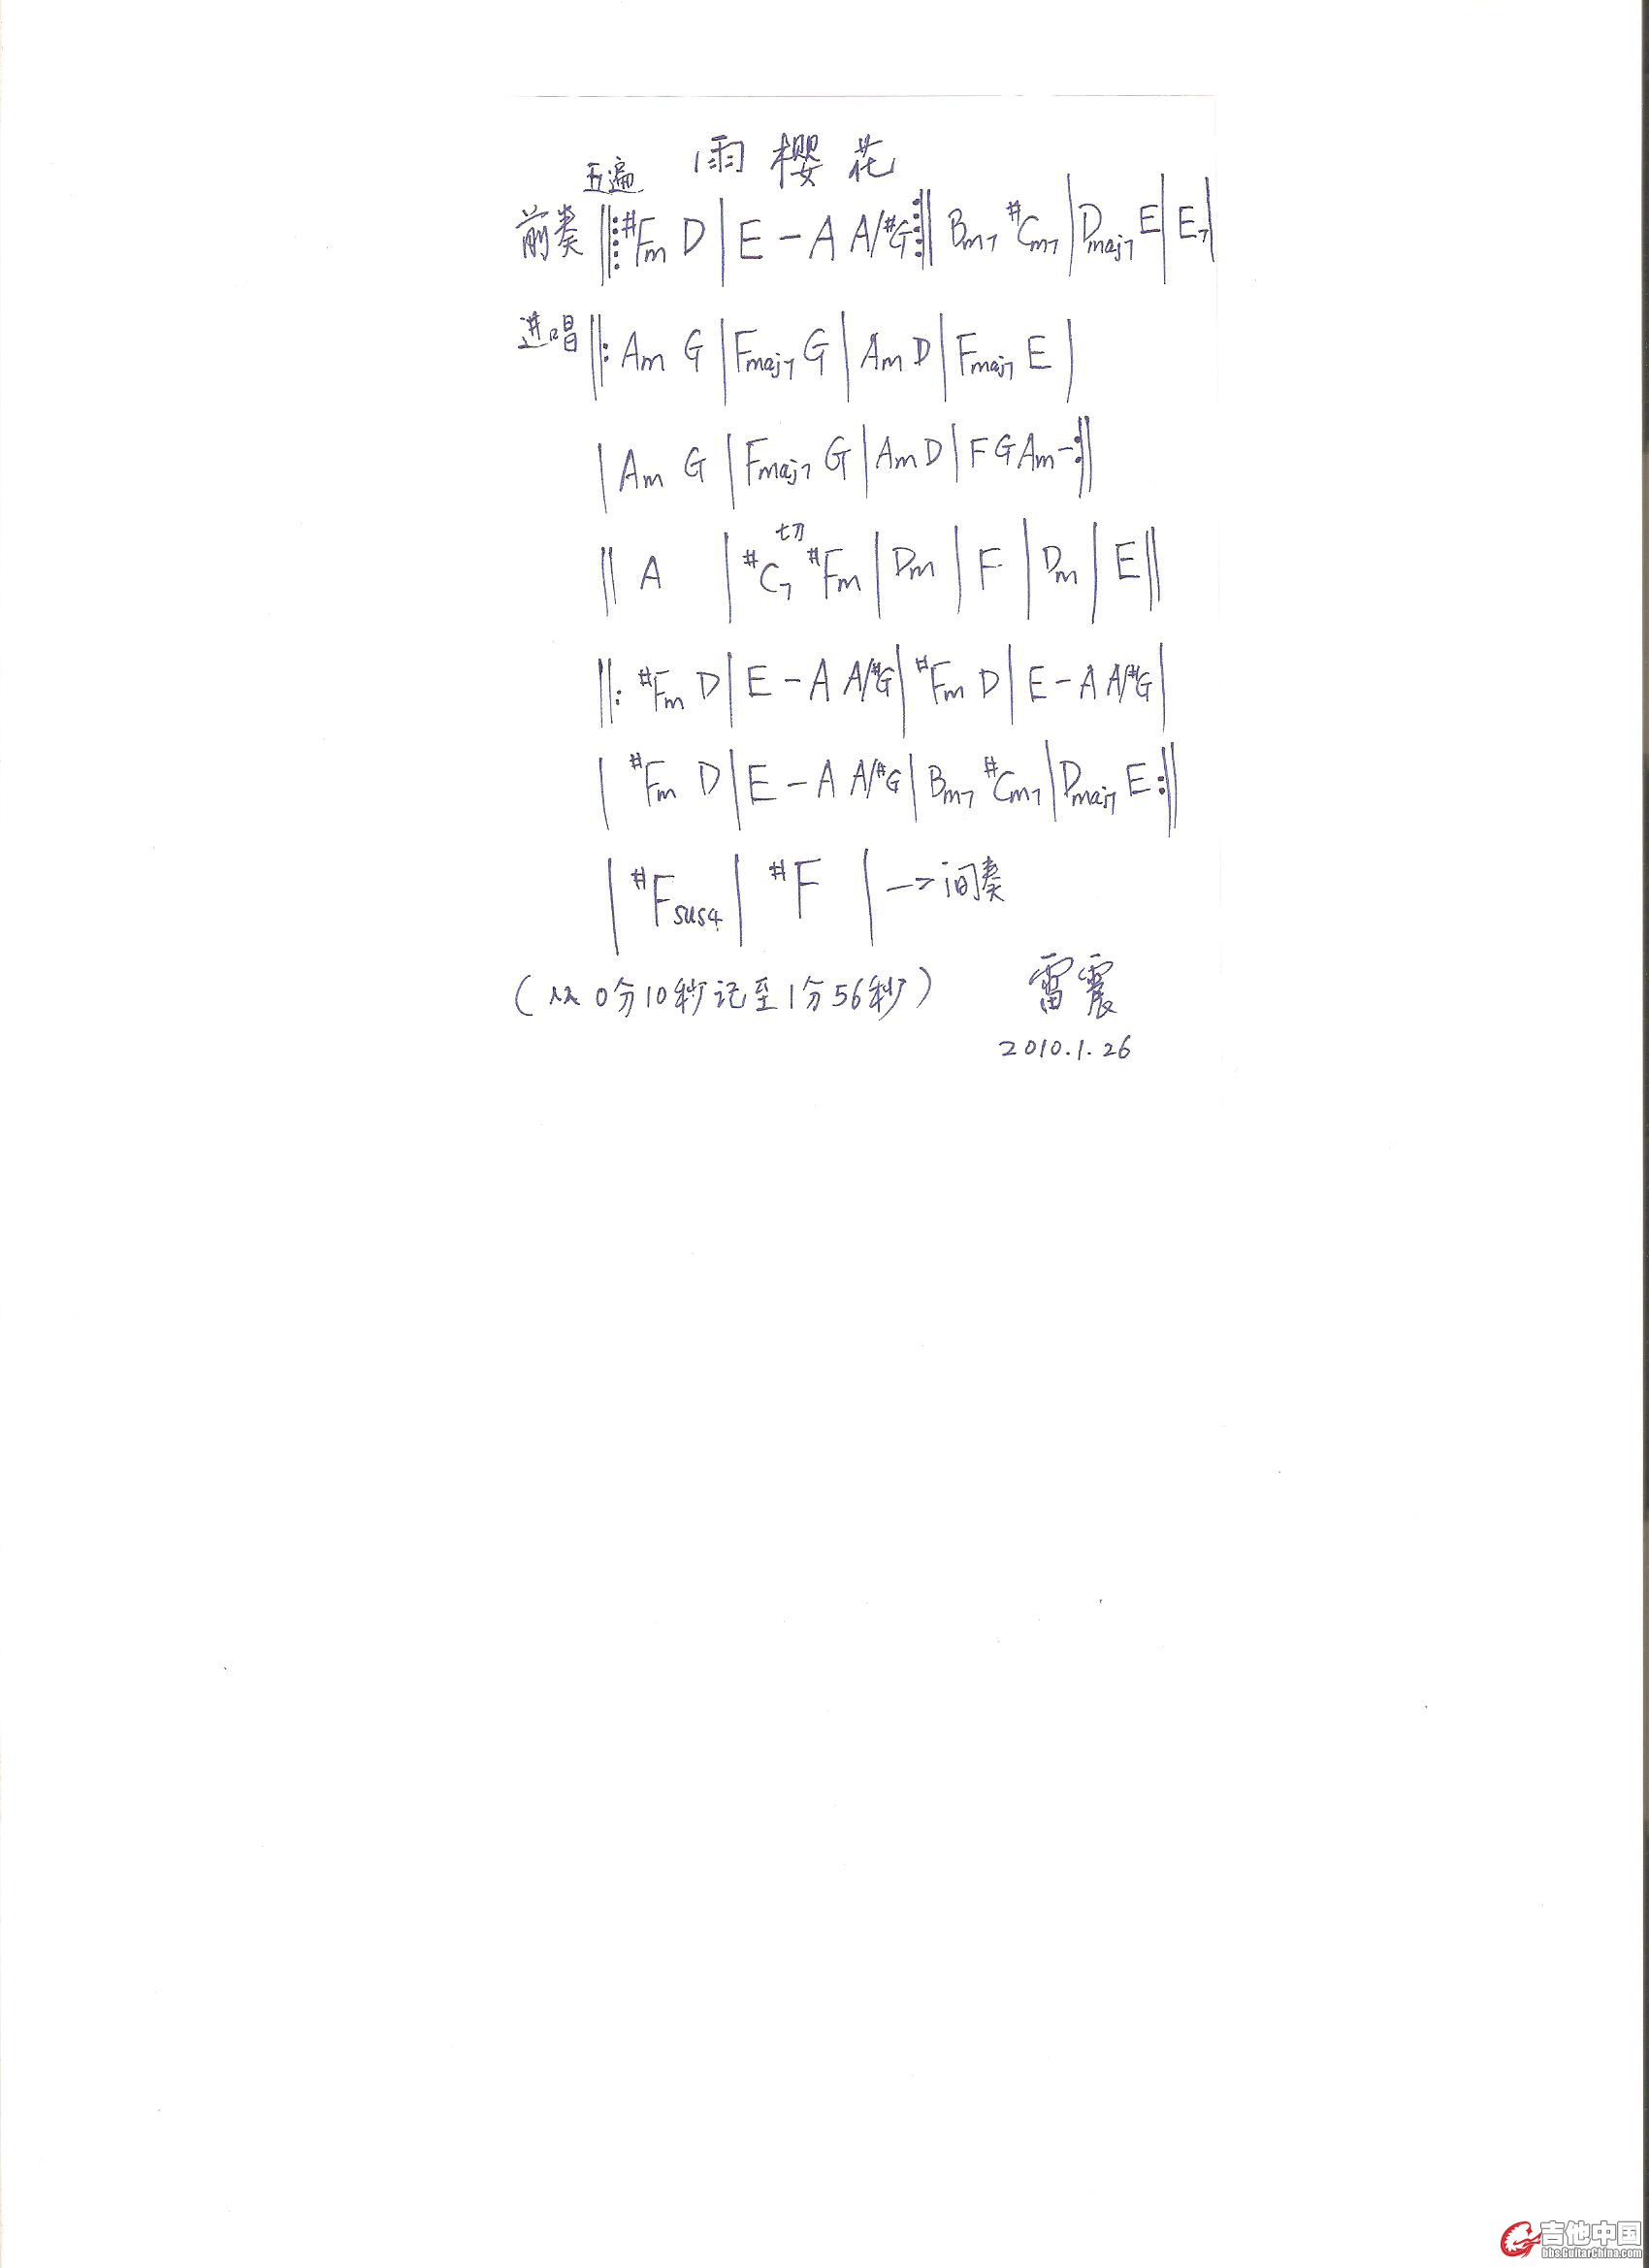 雨樱花
五遍
前奏 ‖: #Fm D | E - A A/#G :‖ Bm7 #Cm7 | Dmaj7 E | E7 |
进唱 ‖: Am G | Fmaj7 G | Am D | Fmaj7 E |
| Am G | Fmaj7 G | Am D | F G Am - :‖
切
‖ A | #C7 #Fm | Dm | F | Dm | E ‖
‖: #Fm D | E - A A/#G | #Fm D | E - A A/#G |
| #Fm D | E - A A/#G | Bm7 #Cm7 | Dmaj7 E :‖
| #Fsus4 | #F | -> 间奏
(从0分10秒记至1分56秒) 雷震
2010.1.26
吉他中国
bbs.GuitarChina.com